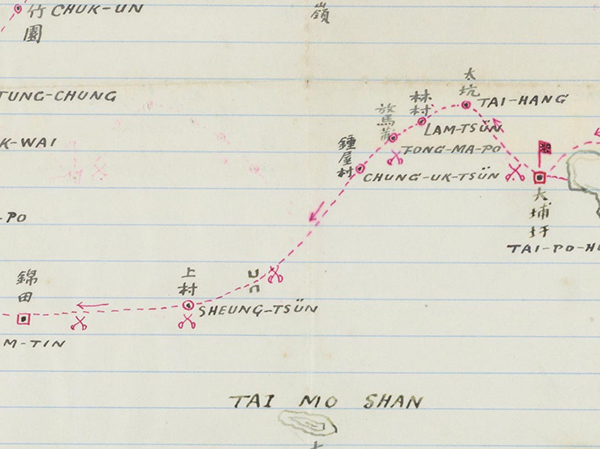 竹園
CHUK-UN
嶺
TUNG-CHUNG
太坑
TAI-HANG
林村
LAM-TSÜN
放馬
FONG-MA-PO
K-WAI
鍾屋村
CHUNG-UK-TSÜN
大埔圩
TAI-PO-H
-PO
錦田
M-TIN
上村
SHEUNG-TSÜN
TAI MO SHAN